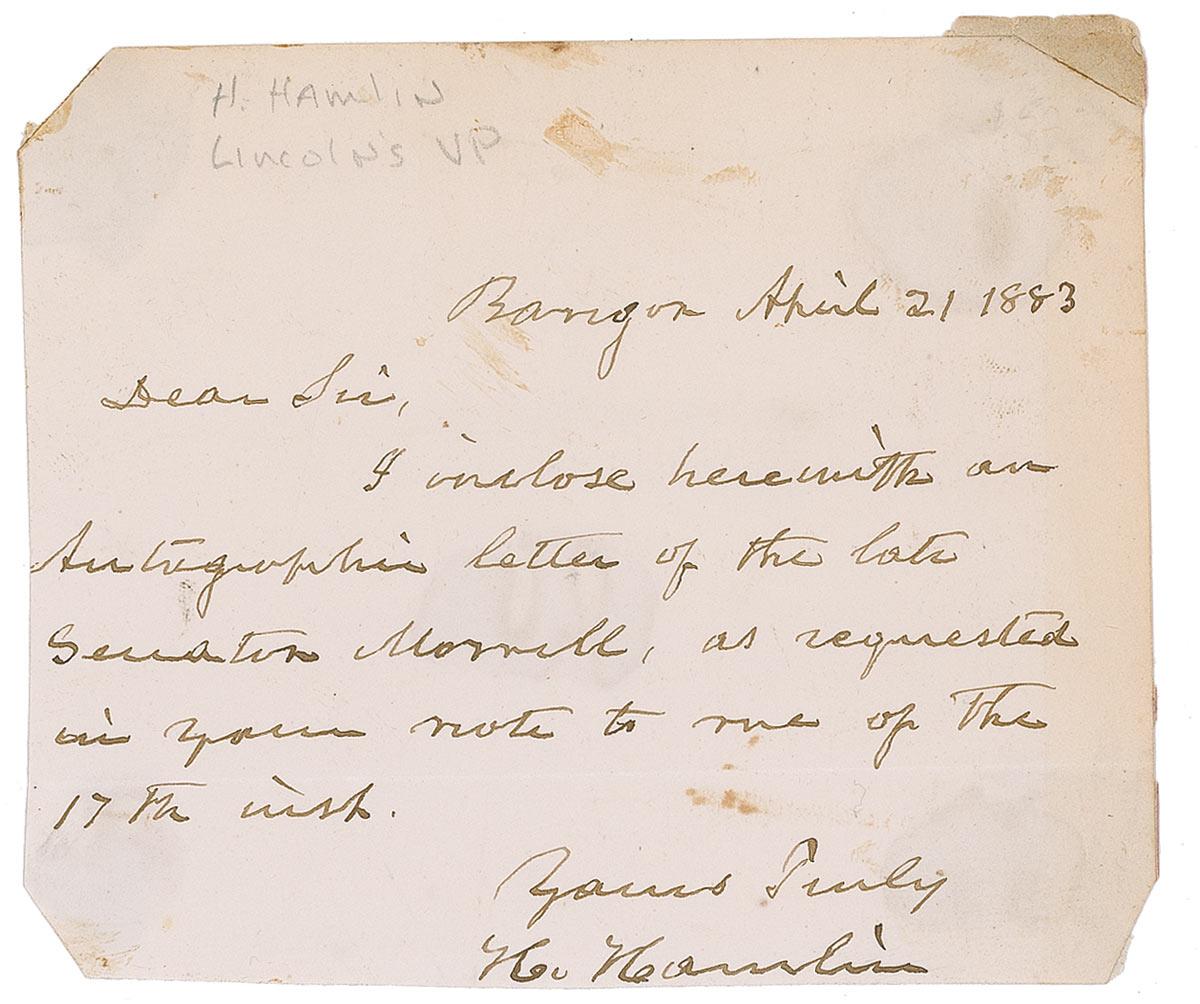 H. HAMLIN
LINCOLN'S VP
Bangor April 21 1883
Dear Sir,
I inclose herewith an
Autographic letter of the late
Senator Morrill, as requested
in your note to me of the
17th inst.
Yours Truly
H. Hamlin